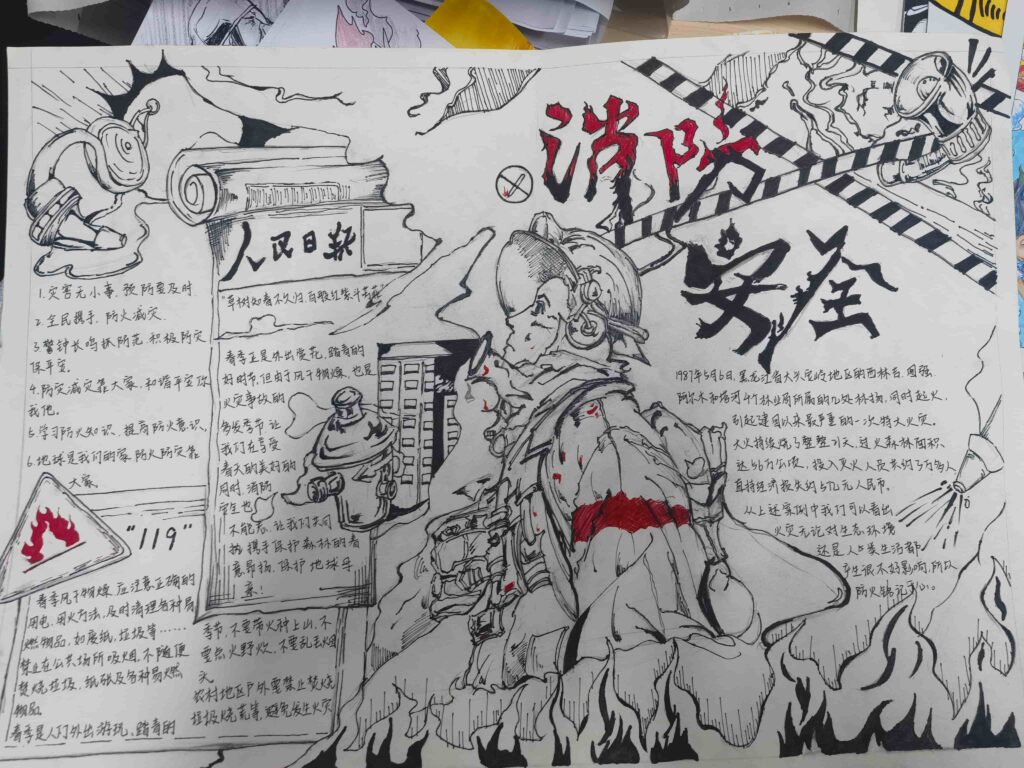 消防
安全
人民日报
"草树知春不久归,百般红紫斗芳菲"
1.灾害无小事,预防要及时
2.全民携手,防火减灾.
3.警钟长鸣抓防范 积极防灾
保平安.
4.防灾减灾靠大家,和谐平安你
我他.
5.学习防火知识,提高防火意识,
6.地球是我们的家 防火防灾靠
大家
春季正是外出赏花,踏青的
好时节,但由于风干物燥,也是
火灾事故的
多发季节 让
我们在享受
春天的美好的
同时 消防
安全也
不能忘,让我们共同
携手保护森林的春
意昂扬,保护地球母
亲!
"119"
春季风干物燥 应注意正确的
用电,用火方法,及时清理各种易
燃物品,如废纸,垃圾等……
禁止在公共场所吸烟,不随便
焚烧垃圾,纸张及各种易燃
物品
春季是人们外出游玩、踏青的
季节,不要带火种上山,不
要点火野炊,不要乱丢烟
农村地区户外要禁止焚烧
垃圾烧荒等,避免发生火灾
1987年5月6日,黑龙江省大兴安岭地区的西林吉,图强
阿尔木和塔河4个林业局所属的几处林场,同时起火,
引起建国以来最严重的一次特大火灾.
大火持续烧了整整 天,过火森林面积
达 万公顷,投入灭火人员共约5万多人
直接经济损失约5亿元人民币.
从上述案例中我们可以看出
火灾无论对生态环境
还是人类生活都
产生很不好影响,所以
防火